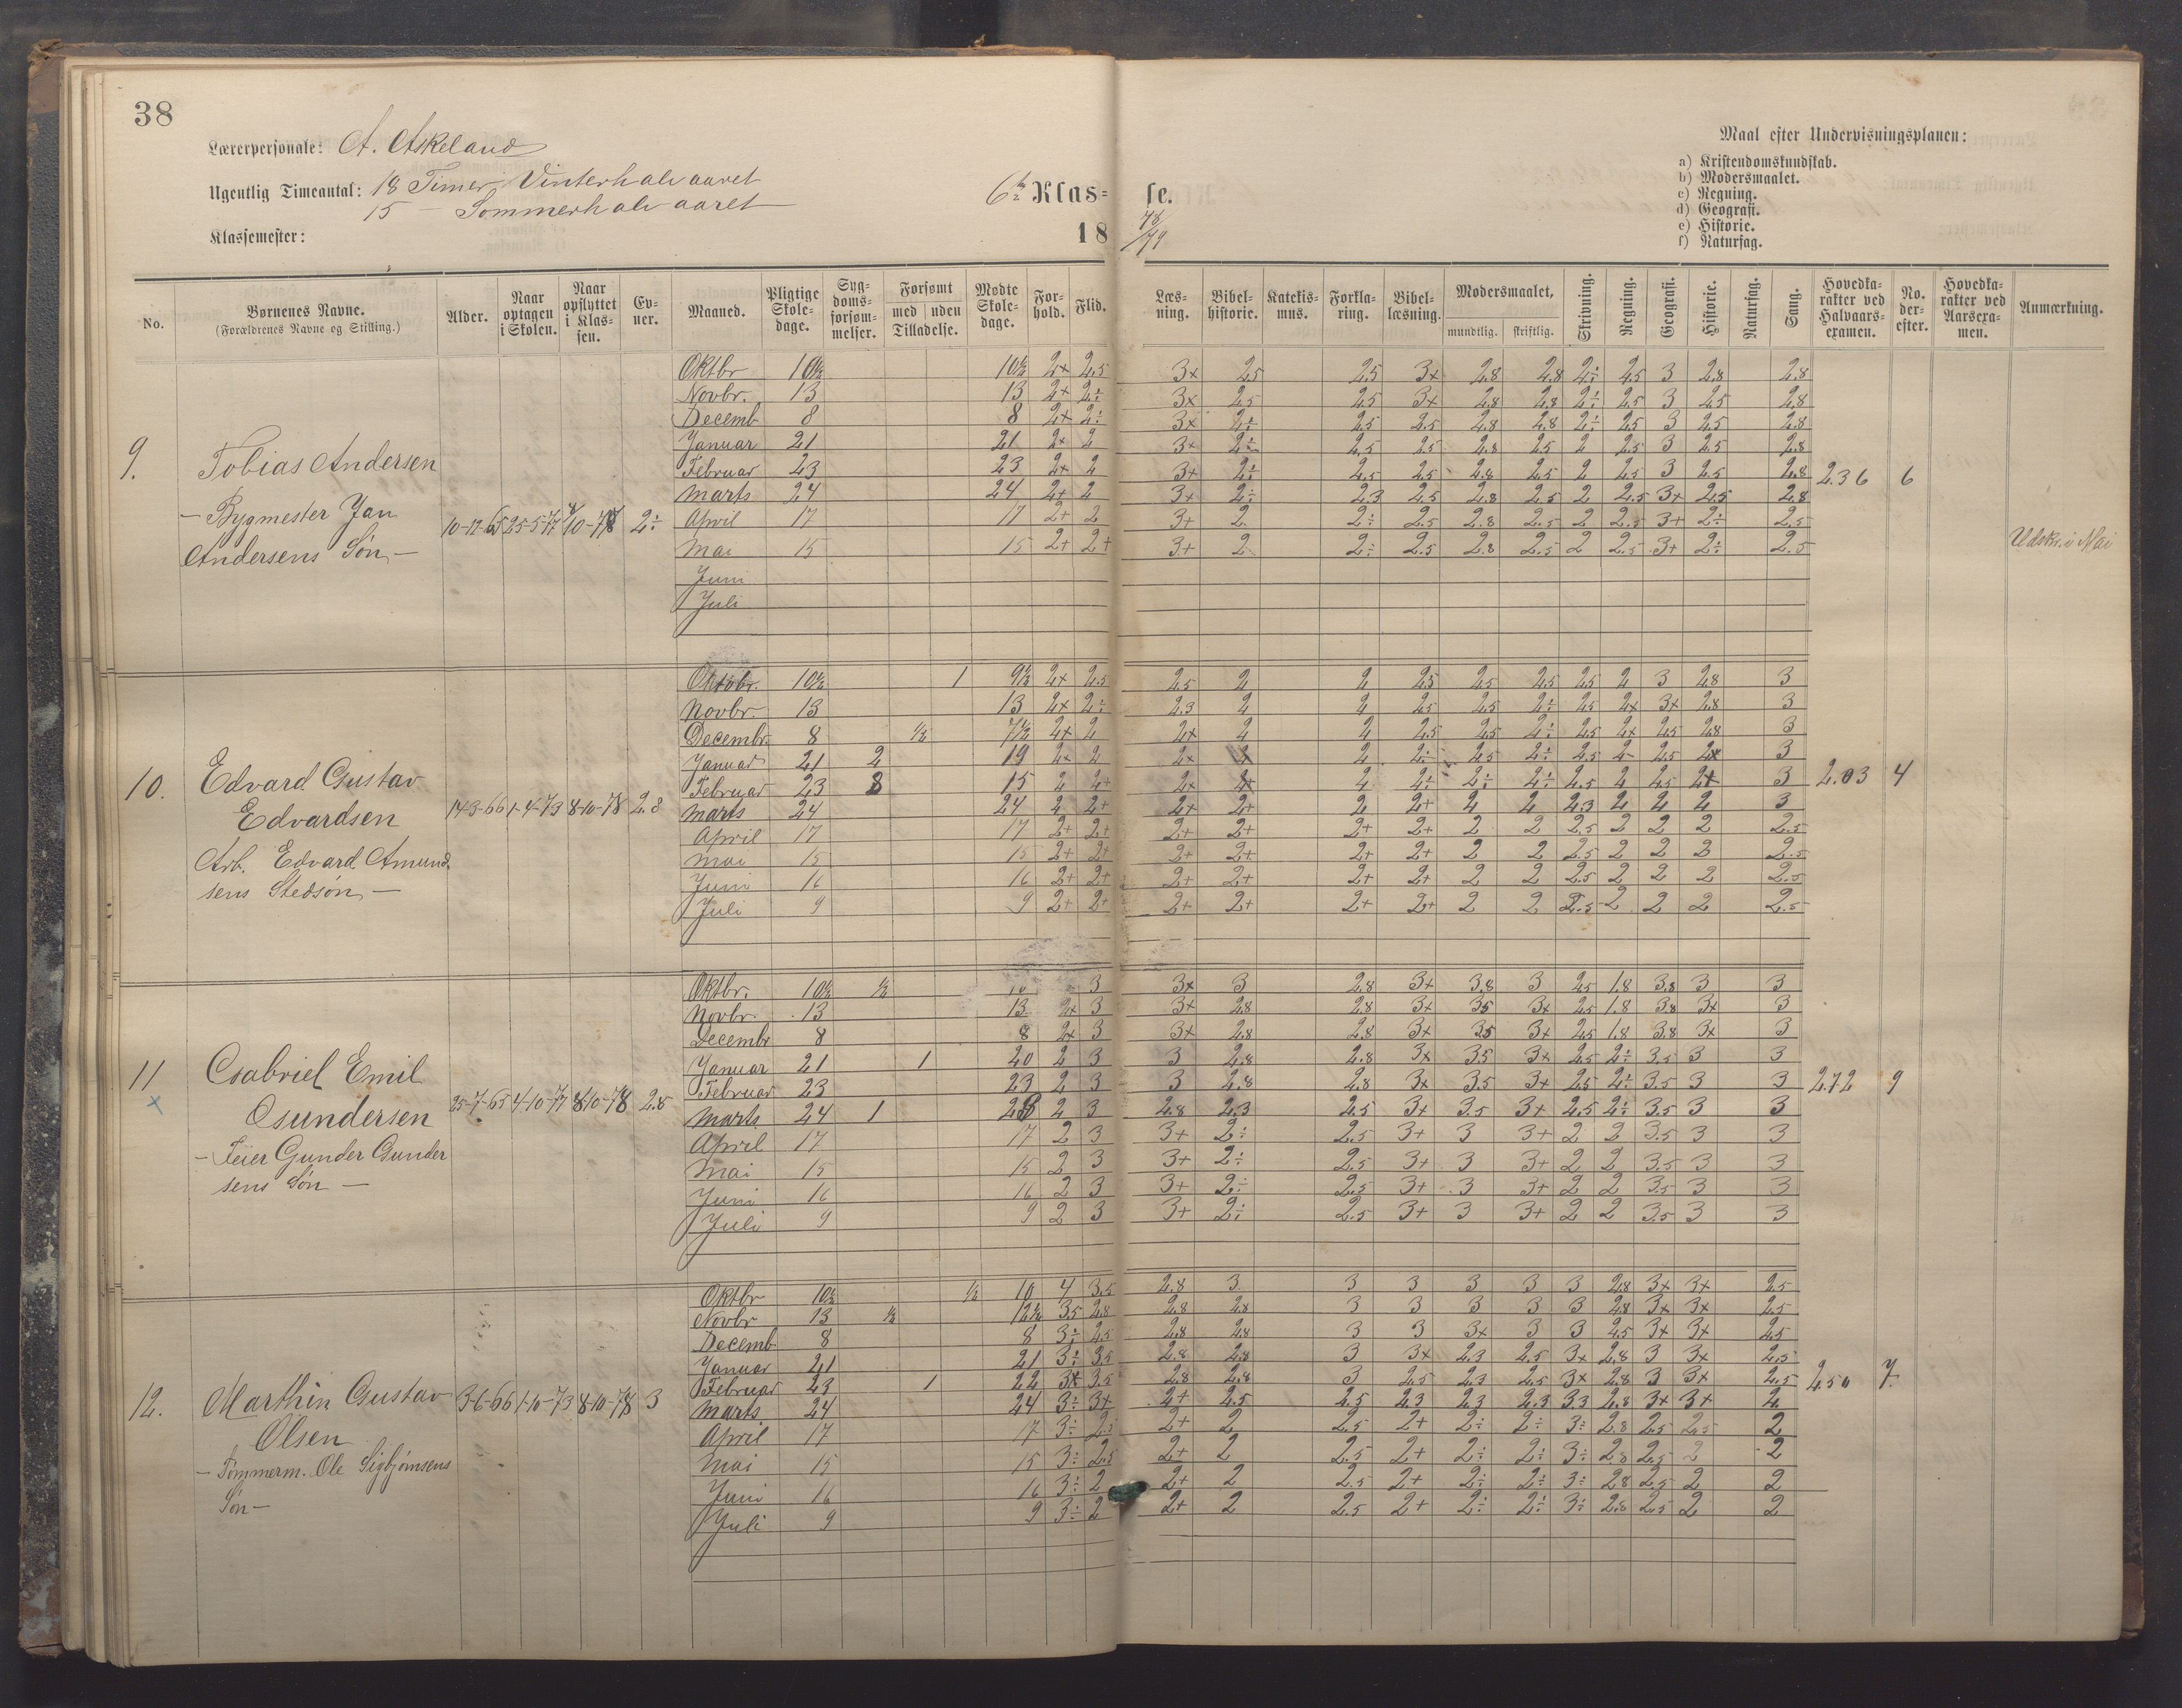 38
Lærerpersonale: A. Askeland
Ugentlig Timeantal: 18 Timer Vinterhalvaaret
15 — Sommerhalvaaret
Klassemester:
6te Klas= se.
18 78/79
Maal efter Undervisningsplanen:
a) Kristendomskundskab.
b) Modersmaalet.
c) Regning.
d) Geografi.
e) Historie.
f) Naturfag.
No. Børnenes Navne. (Forældrenes Navne og Stilling.) Alder. Naar optagen i Skolen. Naar opflyttet i Klassen. Evner. Maaned. Pligtige Skoledage. Sygdomsforsømmelser. Forsømt med uden Tilladelse. Mødte Skoledage. Forhold. Flid. Læsning. Bibelhistorie. Katekismus. Forklaring. Bibellæsning. Modersmaalet, mundtlig. skriftlig. Skrivning. Regning. Geografi. Historie. Naturfag. Sang. Hovedkarakter ved Halvaarsexamen. No. derefter. Hovedkarakter ved Aarsexamen. Anmærkning.
9. Tobias Andersen
— Bygmester Jan
Andersens Søn —
10-12-65 25-5-77 2÷
2.36 6
Udskr. i Mai
Oktbr 10½ 10½ 2+ 2.5 3+ 2.5 2.5 3+ 2.8 2.8 2÷ 2.5 3 2.8 2.8
Novbr. 13 13 2+ 2÷ 3+ 2.5 2.5 3+ 2.8 2.8 2÷ 2.5 3 2.5 2.8
Decemb 8 8 2+ 2÷ 3+ 2÷ 2.5 2.5 2.8 2.8 2÷ 2.5 3 2.5 2.8
Januar 21 21 2+ 2 3+ 2÷ 2.5 2.5 2.8 2.5 2 2.5 3 2.5 2.8
Februar 23 23 2+ 2 3+ 2÷ 2.5 2.5 2.8 2.5 2 2.5 3 2.5 2.8
Marts 24 24 2+ 2 3+ 2÷ 2.3 2.5 2.8 2.5 2 2.5 3+ 2.5 2.8
April 17 17 2+ 2 3+ 2 2÷ 2.5 2.8 2.5 2 2.5 3+ 2÷ 2.5
Mai 15 15 2+ 2+ 3+ 2 2÷ 2.5 2.8 2.5 2 2.5 3+ 2÷ 2.5
Juni
Juli
10. Edvard Gustav
Edvardsen
Arb. Edvard Amund
sens Stedsøn —
14-3-66 1-4-73 8-10-78 2.8
2.03 4
Oktobr. 10½ 1 9½ 2+ 2.5 2.5 2 2 2.5 2.5 2.5 2.5 2 3 2.8 3
Novbr. 13 13 2+ 2÷ 2.3 2 2 2.5 2.5 2÷ 2.5 2+ 3+ 2.8 3
Decembr. 8 ½ 7½ 2+ 2 2+ 2 2 2.5 2.5 2÷ 2.5 2+ 2.5 2.8 3
Januar 21 2 19 2+ 2 2+ 2 2 2÷ 2.5 2÷ 2.5 2 2.5 2+ 3
Februar 23 8 15 2 2+ 2+ 2+ 2 2÷ 2÷ 2÷ 2.5 2 2.5 2+ 3
Marts 24 24 2 2+ 2+ 2+ 2 2+ 2 2 2.3 2 2 2 3
April 17 17 2+ 2+ 2+ 2+ 2+ 2+ 2 2 2.5 2 2 2 2.5
Mai 15 15 2+ 2+ 2+ 2+ 2+ 2+ 2 2 2.5 2 2 2 2.5
Juni 16 16 2+ 2+ 2+ 2+ 2+ 2+ 2 2 2.5 2 2 2 2.5
Juli 9 9 2+ 2+ 2+ 2+ 2+ 2+ 2 2 2.5 2 2 2 2.5
11 Gabriel Emil
Gundersen
— Feier Gunder Gunder
sens Søn —
25-7-65 4-10-77 8-10-78 2.8
2.72 9
Oktbr. 10½ ½ 10 3 3+ 3 2.8 3+ 3.8 3 2.5 1.8 3.8 3 3
Novbr. 13 13 2+ 3 3+ 2.8 2.8 3+ 3.5 3+ 2.5 1.8 3.8 3+ 3
Decembr 8 8 2+ 3 3+ 2.8 2.8 3+ 3.5 3+ 2.5 1.8 3.8 3+ 3
Januar 21 1 20 2 3 3 2.8 2.8 3+ 3.5 3+ 2.5 2÷ 3.5 3 3
Februar 23 23 2 3 3 2.8 2.8 3+ 3.5 3+ 2.5 2÷ 3.5 3 3
Marts 24 1 23 2 3 2.8 2.3 2.5 3+ 3.5 3+ 2.5 2÷ 3.5 3 3
April 17 17 2 3 3+ 2÷ 2.5 3+ 3 3+ 2 2 3.5 3 3
Mai 15 15 2 3 3+ 2÷ 2.5 3+ 3 3+ 2 2 3.5 3 3
Juni 16 16 2 3 3+ 2÷ 2.5 3+ 3 3+ 2 2 3.5 3 3
Juli 9 9 2 3 3+ 2÷ 2.5 3+ 3 3+ 2 2 3.5 3 3
12. Marthin Gustav
Olsen
— Tømmerm. Ole Sigbjørnsens
Søn —
3-6-66 1-10-73 8-10-78 3
2.50 7.
Oktbr 10½ ½ 10 4 3.5 2.8 3 3 3 3 3 3 2.8 3+ 3+ 2.5
Novbr 13 ½ 12½ 3.5 2.8 2.8 2.8 3 3 3 3 3 2.8 3+ 3+ 2.5
Decemb 8 8 3÷ 2.5 2.8 2.8 3 3 3+ 3 3 2.5 3+ 3+ 2.5
Januar 21 21 3÷ 3.5 2.8 2.8 3 3+ 2.3 2.5 3+ 2.8 3 3+ 2.5
Februar 23 1 22 3+ 3.5 2.8 2.8 3 2.5 2.3 2.5 3+ 2.8 3 3+ 2.5
Marts 24 24 3÷ 3+ 2+ 2.5 2.5 2.3 2.3 2.3 3.3 2.8 3+ 3+ 2
April 17 17 3÷ 2.5 2+ 2 2.5 2+ 2÷ 2÷ 3÷ 2.8 2.5 2.5 2
Mai 15 15 3÷ 2.5 2+ 2 2.5 2+ 2÷ 2÷ 3÷ 2.8 2.5 2 2
Juni 16 16 3÷ 2 2+ 2 2.5 2+ 2÷ 2÷ 3÷ 2.8 2.5 2 2
Juli 9 9 3÷ 2 2+ 2 2.5 2+ 2÷ 2÷ 3÷ 2.8 2.5 2 2